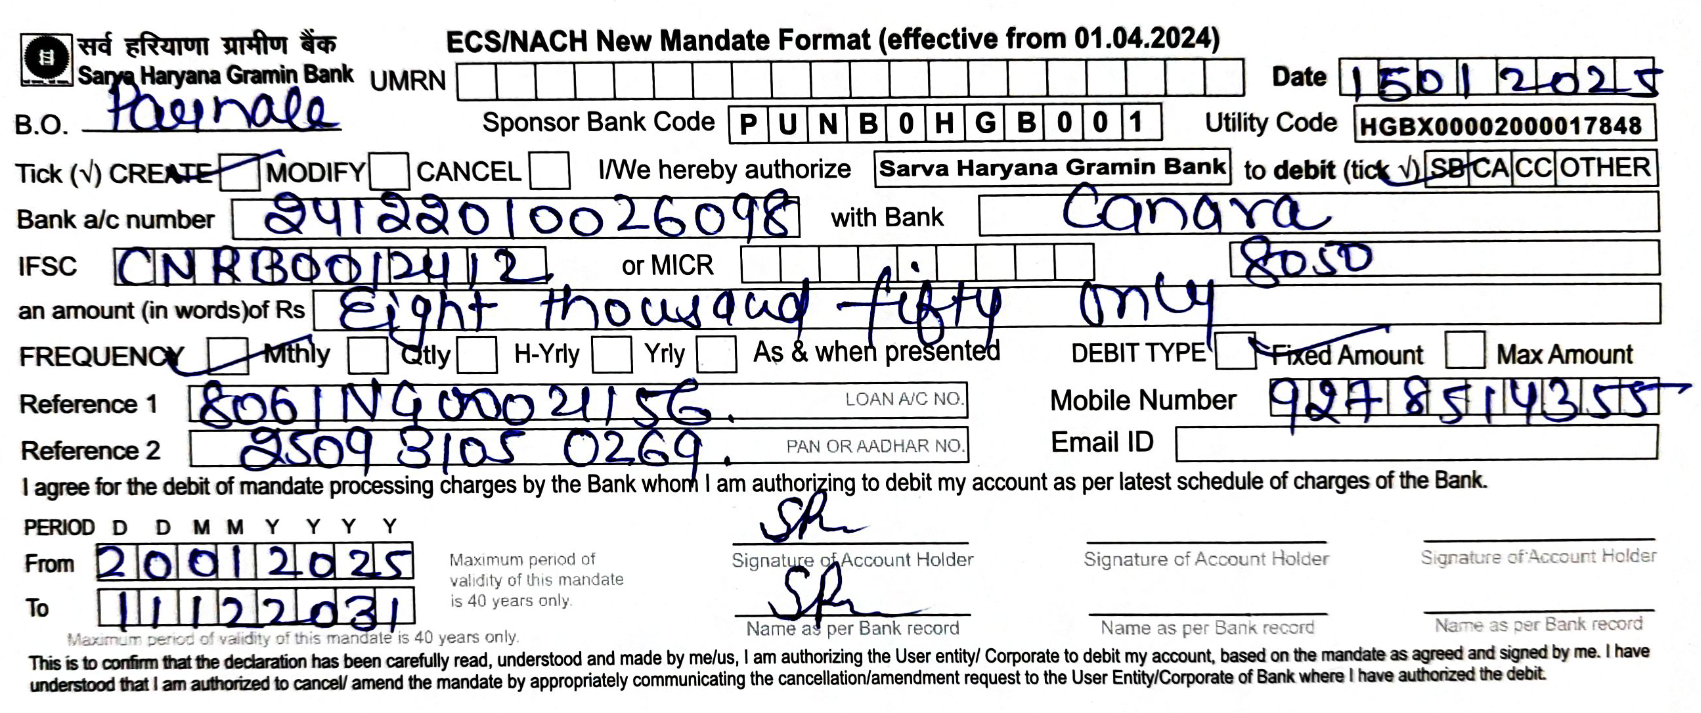 सर्व हरियाणा ग्रामीण बैंक
Sarva Haryana Gramin Bank
ECS/NACH New Mandate Format (effective from 01.04.2024)
UMRN Date 15012025
B.O. Sponsor Bank Code PUNB0HGB001 Utility Code HGBX00002000017848
Tick (√) CREATE MODIFY CANCEL I/We hereby authorize Sarva Haryana Gramin Bank to debit (tick √) SB CA CC OTHER
Bank a/c number 24122010026098 with Bank Canara
IFSC CNRB0012412 or MICR 8050
an amount (in words)of Rs Eight thousand fifty only
FREQUENCY Mthly Qtly H-Yrly Yrly As & when presented DEBIT TYPE Fixed Amount Max Amount
Reference 1 LOAN A/C NO. Mobile Number 9278514355
Reference 2 2509 3105 0269. PAN OR AADHAR NO. Email ID
I agree for the debit of mandate processing charges by the Bank whom I am authorizing to debit my account as per latest schedule of charges of the Bank.
PERIOD D D M M Y Y Y Y
From 20012025
To 11122031
Maximum period of
validity of this mandate
is 40 years only.
Signature of Account Holder Signature of Account Holder Signature of Account Holder
Name as per Bank record Name as per Bank record Name as per Bank record
Maximum period of validity of this mandate is 40 years only.
This is to confirm that the declaration has been carefully read, understood and made by me/us, I am authorizing the User entity/ Corporate to debit my account, based on the mandate as agreed and signed by me. I have
understood that I am authorized to cancel/ amend the mandate by appropriately communicating the cancellation/amendment request to the User Entity/Corporate of Bank where I have authorized the debit.